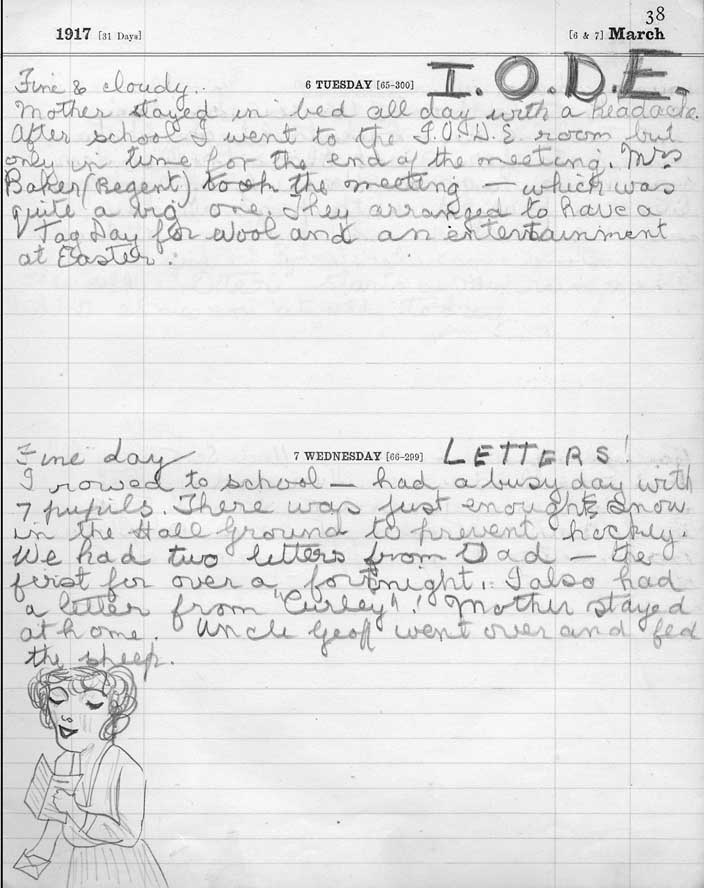 38
1917 [31 Days] [6 & 7] March
6 TUESDAY [65-300] I.O.D.E.
Fine & cloudy.
Mother stayed in bed all day with a headache.
After school I went to the I.O.D.E room but
only in time for the end of the meeting. Mrs
Baker (Regent) took the meeting — which was
quite a big one. They arranged to have a
Tag Day for wool and an entertainment
at Easter.
7 WEDNESDAY [66-299] LETTERS!
Fine day
I rowed to school — had a busy day with
7 pupils. There was just enough snow
in the Hall Ground to prevent hockey.
We had two letters from Dad — the
first for over a fortnight. I also had
a letter from "Curley"! Mother stayed
at home. Uncle Geoff went over and fed
the sheep.